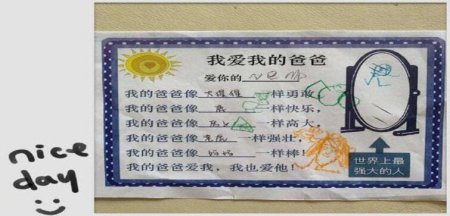 我爱我的爸爸
爱你的
我的爸爸像 一样勇敢，
我的爸爸像 一样快乐，
我的爸爸像 一样高大，
我的爸爸像 一样强壮，
我的爸爸像 妈妈 一样棒！
我的爸爸爱我，我也爱他！
世界上最
强大的人
nice
day